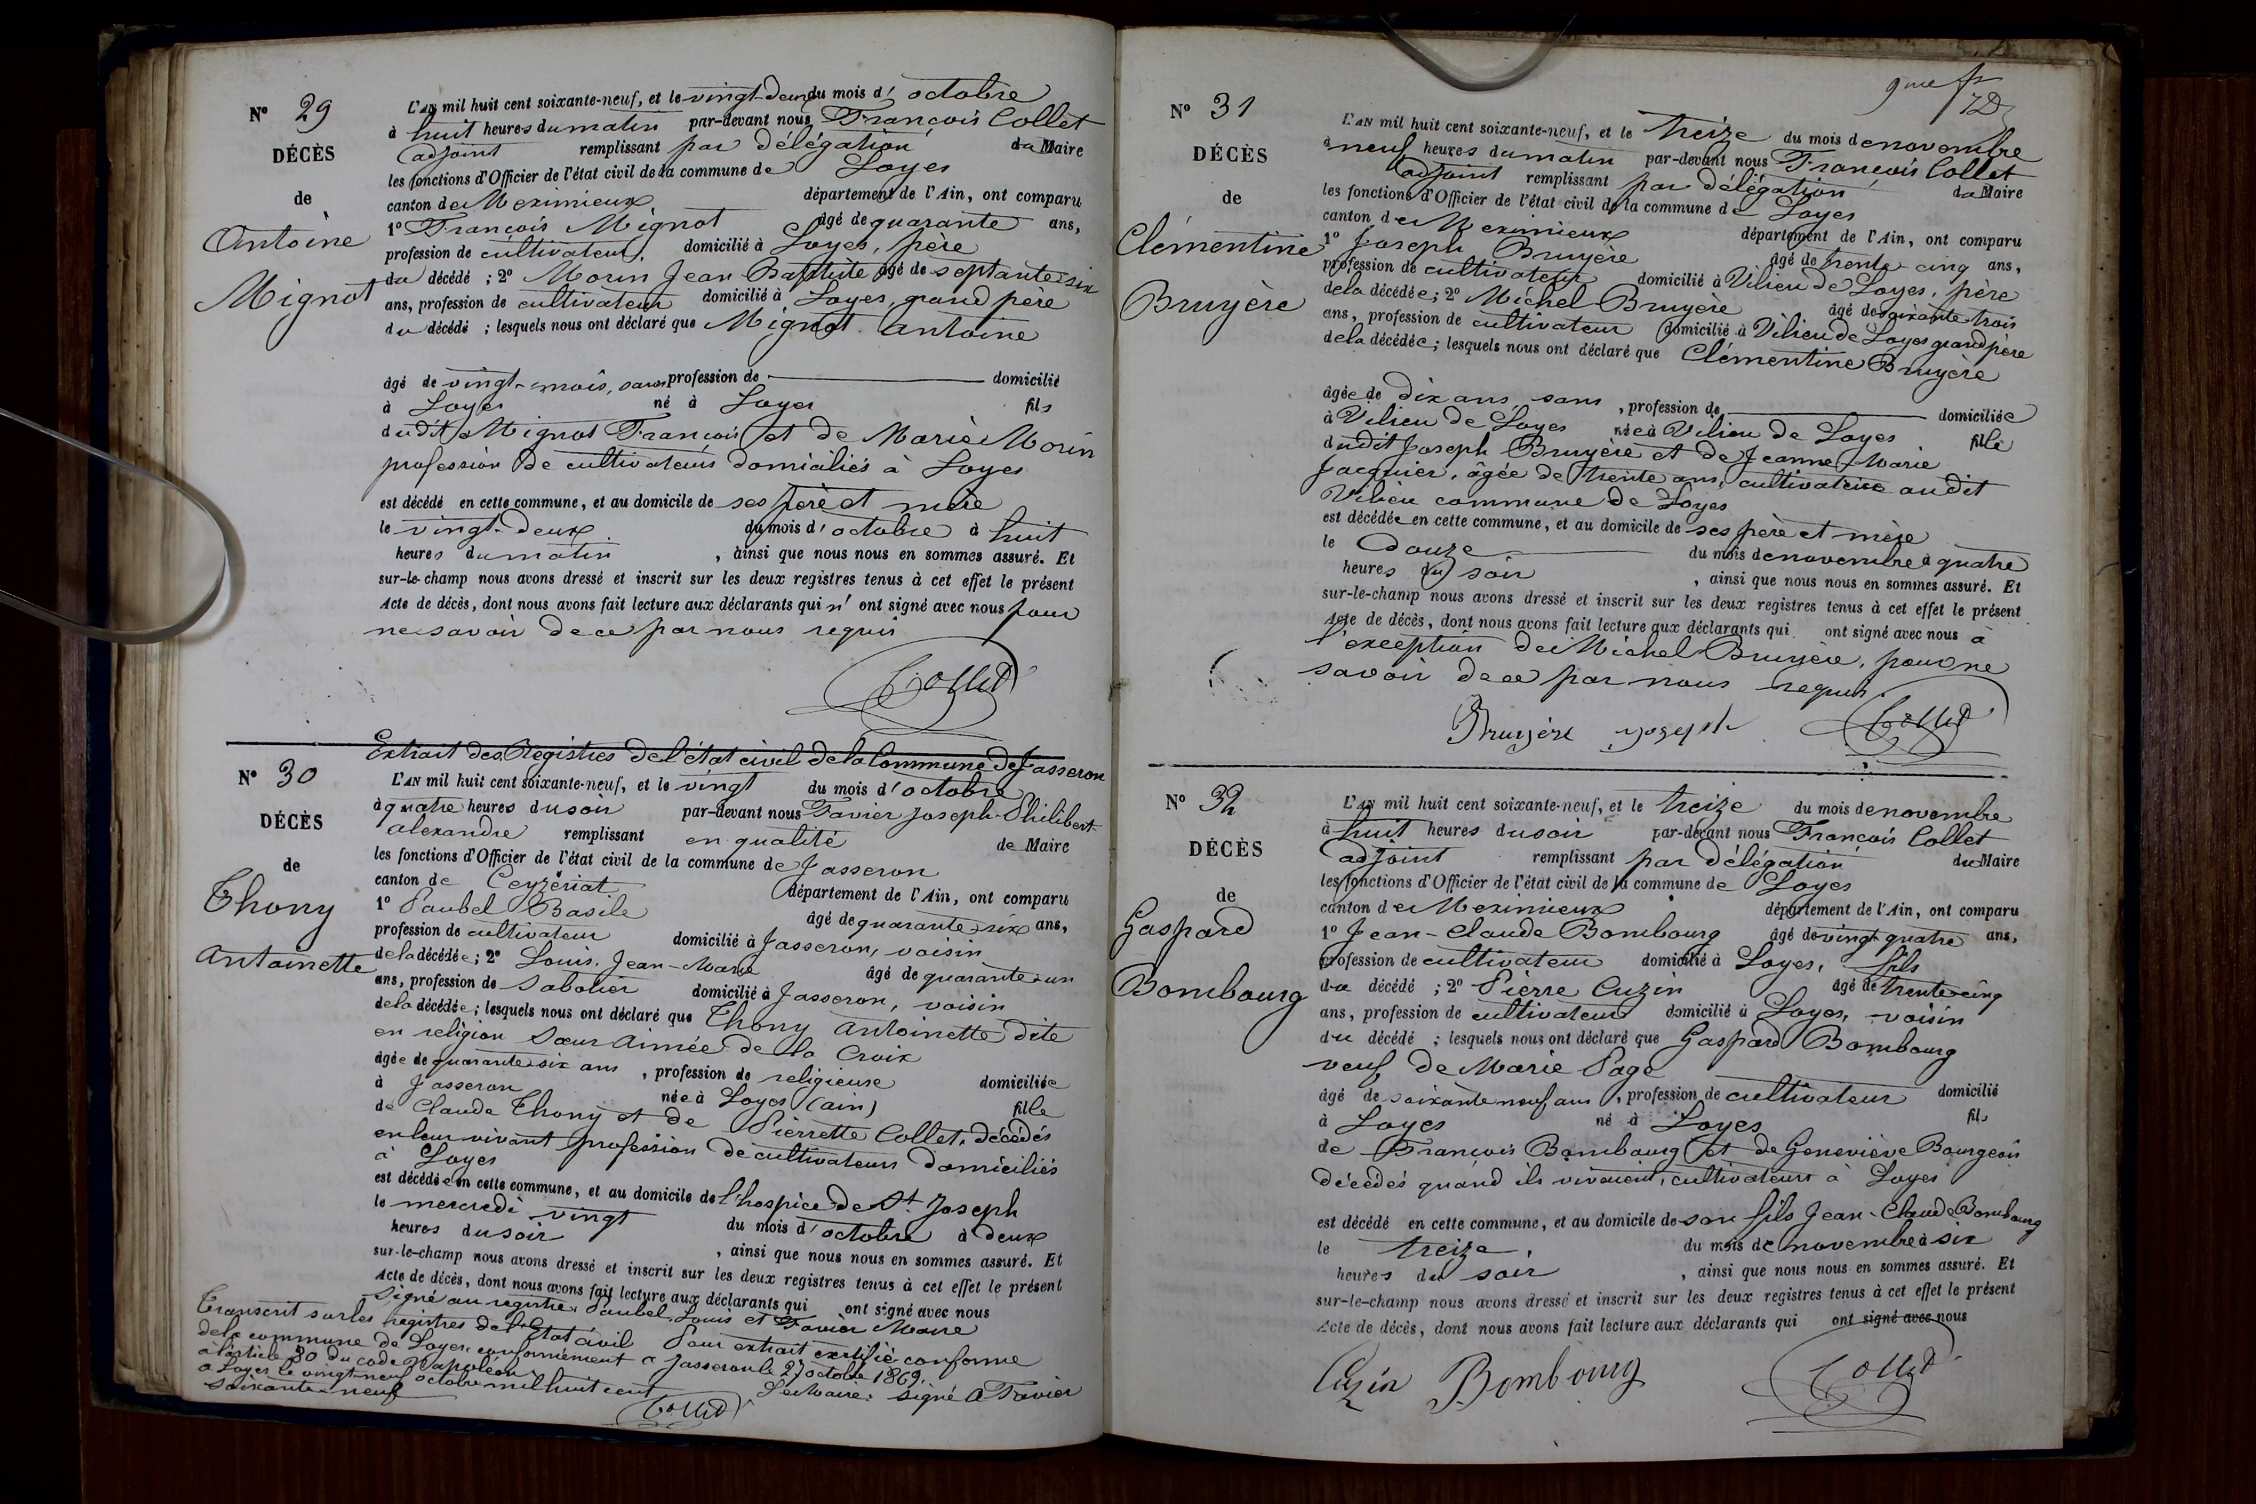 N° 29
DÉCÈS
de
Antoine
Mignot
L'AN mil huit cent soixante-neuf, et le vingt-deux du mois d' octobre
à huit heures du matin par-devant nous François Collet
adjoint remplissant par délégation du Maire
les fonctions d'Officier de l'état civil de la commune de Loyes
canton de Meximieux département de l'Ain, ont comparu
1° François Mignot âgé de quarante ans,
profession de cultivateur, domicilié à Loyes, père
du décédé ; 2° Morin Jean Baptiste âgé de septante six
ans, profession de cultivateur domicilié à Loyes, grand père
du décédé ; lesquels nous ont déclaré que Mignot Antoine
âgé de vingt-mois, sans profession de domicilié
à Loyes né à Loyes fils
dudit Mignot François et de Marie Morin
profession de cultivateurs domiciliés à Loyes
est décédé en cette commune, et au domicile de ses père et mère
le vingt-deux du mois d'octobre à huit
heures du matin , ainsi que nous nous en sommes assuré. Et
sur-le-champ nous avons dressé et inscrit sur les deux registres tenus à cet effet le présent
Acte de décès, dont nous avons fait lecture aux déclarants qui n' ont signé avec nous pour
ne savoir de ce par nous requis
Collet
Extrait des Registres de l'état civil de la Commune de Jasseron
N° 30
DÉCÈS
de
Thony
Antoinette
L'AN mil huit cent soixante-neuf, et le vingt du mois d'octobre
à quatre heures du soir par-devant nous Favier Joseph-Philibert
alexandre remplissant en qualité de Maire
les fonctions d'Officier de l'état civil de la commune de Jasseron
canton de Ceyzériat département de l'Ain, ont comparu
1° Paubel Basile âgé de quarante six ans,
profession de cultivateur domicilié à Jasseron, voisin
de la décédée ; 2° Louis Jean-Marie âgé de quarante un
ans, profession de sabotier domicilié à Jasseron, voisin
de la décédée ; lesquels nous ont déclaré que Thony Antoinette dite
en religion Sœur Aimée de la Croix
âgée de quarante six ans , profession de religieuse domiciliée
à Jasseron née à Loyes (ain) fille
de Claude Thony et de Pierrette Collet, décédés
en leur vivant profession de cultivateurs domiciliés
à Loyes
est décédée en cette commune, et au domicile de l'hospice de St Joseph
le mercredi vingt du mois d'octobre à deux
heures du soir , ainsi que nous nous en sommes assuré. Et
sur-le-champ nous avons dressé et inscrit sur les deux registres tenus à cet effet le présent
Acte de décès, dont nous avons fait lecture aux déclarants qui ont signé avec nous
Signé au registre, Paubel, Louis et Favier Maire
Pour extrait certifié conforme
Jasseron le 27 octobre 1869.
Le Maire : signé A Favier
Transcrit sur les registres de l'Etat civil
de la commune de Loyes conformément
à l'article 80 du code Napoléon
à Loyes le vingt-neuf octobre mil huit cent
soixante-neuf
Collet
N° 31
DÉCÈS
de
Clémentine
Bruyère
L'AN mil huit cent soixante-neuf, et le treize du mois de novembre
à neuf heures du matin par-devant nous François Collet
adjoint remplissant par délégation du Maire
les fonctions d'Officier de l'état civil de la commune de Loyes
canton de Meximieux département de l'Ain, ont comparu
1° Joseph Bruyère âgé de trente-cinq ans,
profession de cultivateur domicilié à Vilieu de Loyes, père
de la décédée ; 2° Michel Bruyère âgé de soixante trois
ans, profession de cultivateur domicilié à Vilieu de Loyes grand père
de la décédée ; lesquels nous ont déclaré que Clémentine Bruyère
âgée de dix ans, sans , profession de domiciliée
à Vilieu de Loyes née à Vilieu de Loyes fille
dudit Joseph Bruyère et de Jeanne-Marie
Jacquier, âgée de trente ans, cultivatrice audit
Vilieu commune de Loyes
est décédée en cette commune, et au domicile de ses père et mère
le douze du mois de novembre à quatre
heures du soir , ainsi que nous nous en sommes assuré. Et
sur-le-champ nous avons dressé et inscrit sur les deux registres tenus à cet effet le présent
Acte de décès, dont nous avons fait lecture aux déclarants qui ont signé avec nous à
l'exception de Michel Bruyère, pour ne
savoir de ce par nous requis.
Bruyère joseph Collet
N° 32
DÉCÈS
de
Gaspard
Bombourg
L'AN mil huit cent soixante-neuf, et le treize du mois de novembre
à huit heures du soir par-devant nous François Collet
adjoint remplissant par délégation du Maire
les fonctions d'Officier de l'état civil de la commune de Loyes
canton de Meximieux département de l'Ain, ont comparu
1° Jean-Claude Bombourg âgé de vingt quatre ans,
profession de cultivateur domicilié à Loyes, fils
du décédé ; 2° Pierre Cuzin âgé de trente-cinq
ans, profession de cultivateur domicilié à Loyes, voisin
du décédé ; lesquels nous ont déclaré que Gaspard Bombourg
veuf de Marie Page
âgé de soixante neuf ans , profession de cultivateur domicilié
à Loyes né à Loyes fils
de François Bombourg et de Geneviève Bourgeois
décédés quand ils vivaient, cultivateurs à Loyes
est décédé en cette commune, et au domicile de son fils Jean-Claude Bombourg
le treize, du mois de novembre à six
heures du soir , ainsi que nous nous en sommes assuré. Et
sur-le-champ nous avons dressé et inscrit sur les deux registres tenus à cet effet le présent
Acte de décès, dont nous avons fait lecture aux déclarants qui ont signé avec nous
Cuzin Bombourg Collet